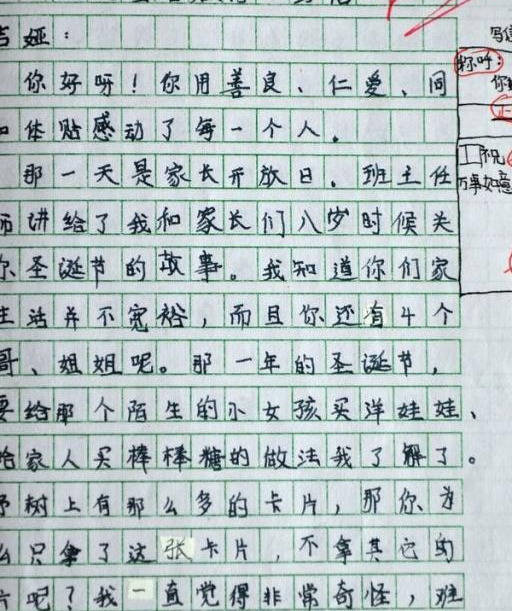 吉娅：
你好呀！你用善良、仁爱、同
和体贴感动了每一个人。
那一天是家长开放日，班主任
师讲给了我和家长们八岁时候关
你圣诞节的故事。我知道你们家
生活并不宽裕，而且你还有4个
哥、姐姐呢。那一年的圣诞节，
要给那个陌生的小女孩买洋娃娃、
给家人买棒棒糖的做法我了解了。
树上有那么多的卡片，那你为
么只拿了这张卡片，不拿其它的
片呢？我一直觉得非常奇怪，难
称呼：
正
祝
万事如意